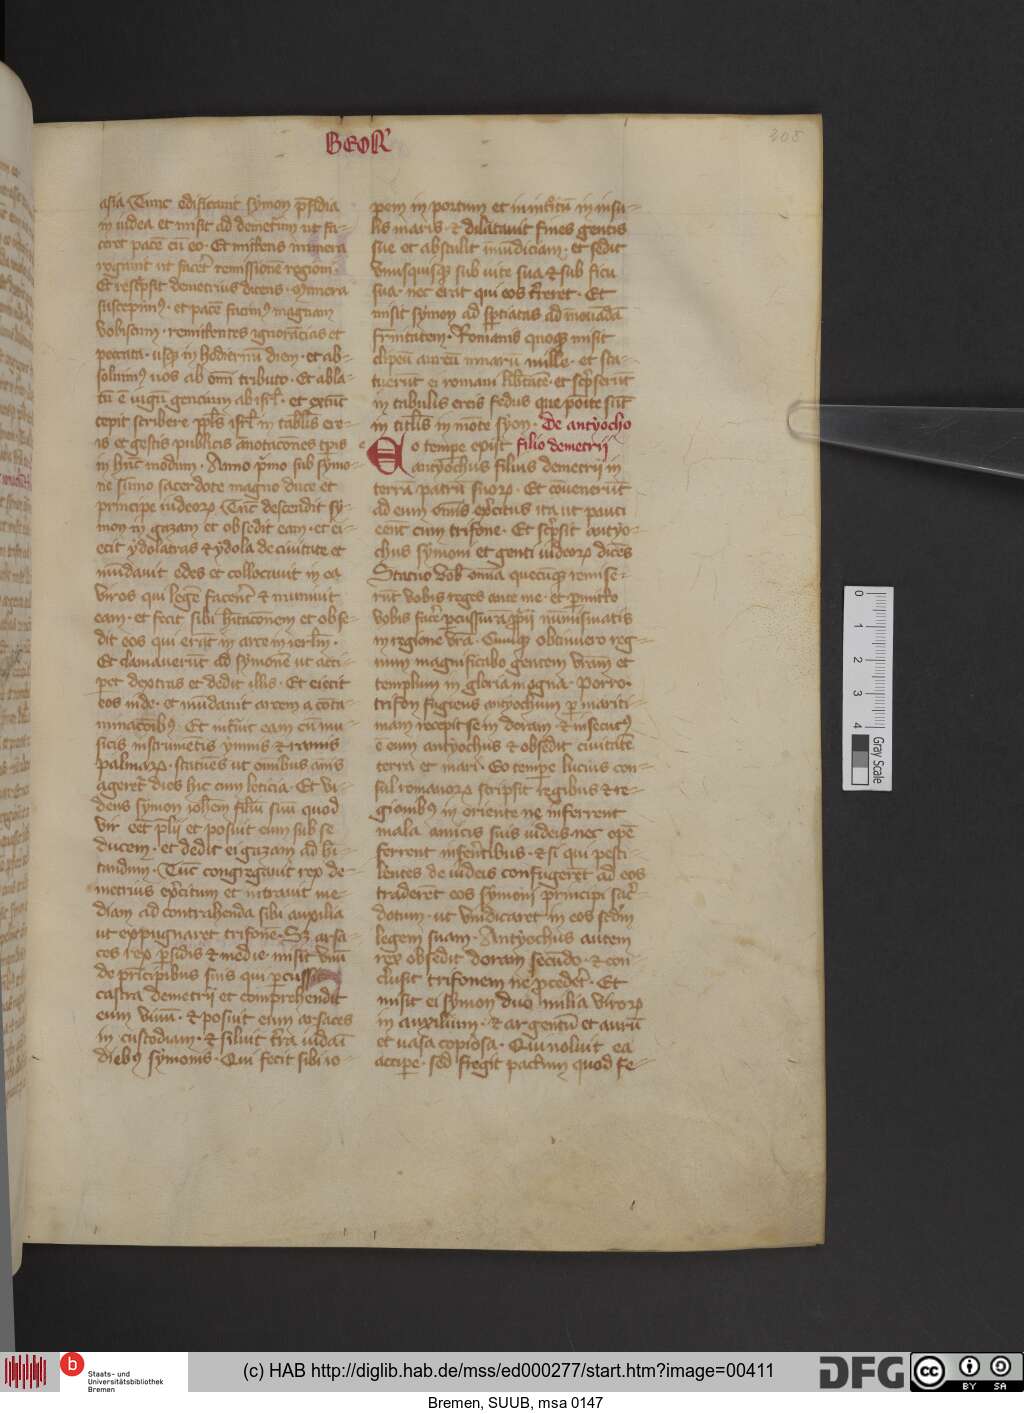 BEOR
205
asia Tunc edificavit symon psidia
in iudea et misit ad demetrium ut fa-
ceret pacē cū eo · Et mittens munera
rogavit ut facet remissionē regioni ·
Et rescpsit demetrius dicens · Munera
suscepimꝰ · et pacē facimꝰ magnam
vobiscum · remittentes ignorācias et
peccata · usqꝫ in hodiernū diem · et ab-
soluimꝰ vos ab omi tributo · Et abla-
tū ē iugū gencium ab isrl · et cepit
cepit scribere ppls isrl in tablis ere-
is et gestis publicis ānotacōnes tpis
in hūc modum · Anno pmo sub symo-
ne sūmo sacerdote magno duce et
principe iudeoꝝ Tūc descendit sy-
mon in gazam et obsedit eam · et ei-
ecit ydolatras et ydola de civitate et
mūdavit edes et collocavit in ea
viros qui legē facent et munivit
eam · et fecit sibi hitacōnem et obse-
dit eos qui erāt in arce in ierlm ·
Et clamaverūt ad symonē ut acci-
pet dextras et dedit illis · Et eiecit
eos inde · et mūdavit arcem a cōta-
minacōnibꝰ · Et intvit eam cū mu-
sicis instrumētis ymnis et ramis
palmaꝝ · statuēs ut omnibus anis
ageret dies hic cum leticia · Et vi-
dens symon iohem filiū suū quod
vir eēt plii et posuit eum sub se
ducem · et dedit ei gazam ad hi-
tandum · Tūc congregavit rex de-
metrius excitum et intravit me-
diam ad contrahenda sibi auxilia
ut expugnaret trifonē · Sꝫ arsa-
ces rex psidis et medie · misit unū
de principibus suis qui pcussit
castra demetrii et comprehendit
eum vivū · et posuit eum arsaces
in custodiam · et siluit tra iudaī
diebꝫ symonis · Qui fecit sibi io-
pem in portum et in introitū in insu-
lis maris · et dilatavit fines gentis
sue et abstulit īmūdiciam · et sedit
unusquisqꝫ sub vite sua et sub ficu
sua · nec erat qui eos treret · Et
misit symon ad sptiatas ad īnovādā
frnitatem · Romanis quoqꝫ misit
clipeū aureū mnarū mille · et sta-
tuerūt ei romani libtatē · et scpserūt
in tabulis ereis fedus que posite sūt
in titlis in mōte syon · De antyocho
Eo tempe epiit filio demetrii
antyochus filius demetrii in
terrā patrū suoꝝ · Et cōvenerūt
ad eum omīs excitus ita ut pauci
eent cum trifone · Et scpsit antyo-
chus symoni et genti iudeoꝝ dicēs
Statuo vob omīa quecūqꝫ remise-
rūt vobis reges ante me · et pmitto
vobis facere pcussurā pprii numismatis
in regione vra · Cumqꝫ obtinuero reg-
num magnificabo gentem vram et
templum in gloria magna · Porro
trifon fugiens antyochum p mariti-
mam recepit se in doram · et insecutꝰ
ē eum antyochus et obsedit civitatē
terra et mari · Eo tempe lucius con-
sul romanoꝝ scripsit regibus et re-
gionibꝰ in oriente ne inferrent
mala amicis suis iudeis nec opē
ferrent inferētibus · et si qui pesti-
lentes de iudeis confugeret ad eos
traderēt eos symoni principi sac̄-
dotum · ut vindicaret in eos scdm
legem suam · Antyochus autem
rex obsedit doram secūdo · et con
clusit trifonem ne pcedet · Et
misit ei symon duo milia viroꝝ
in auxilium · et argentū et aurū
et vasa copiosa · Qui noluit ea
accipe · sed fregit pactum quod fe-
0
1
2
3
4
Gray Scale
b
Staats- und
Universitätsbibliothek
Bremen
(c) HAB http://diglib.hab.de/mss/ed000277/start.htm?image=00411
DFG
cc
BY SA
Bremen, SUUB, msa 0147